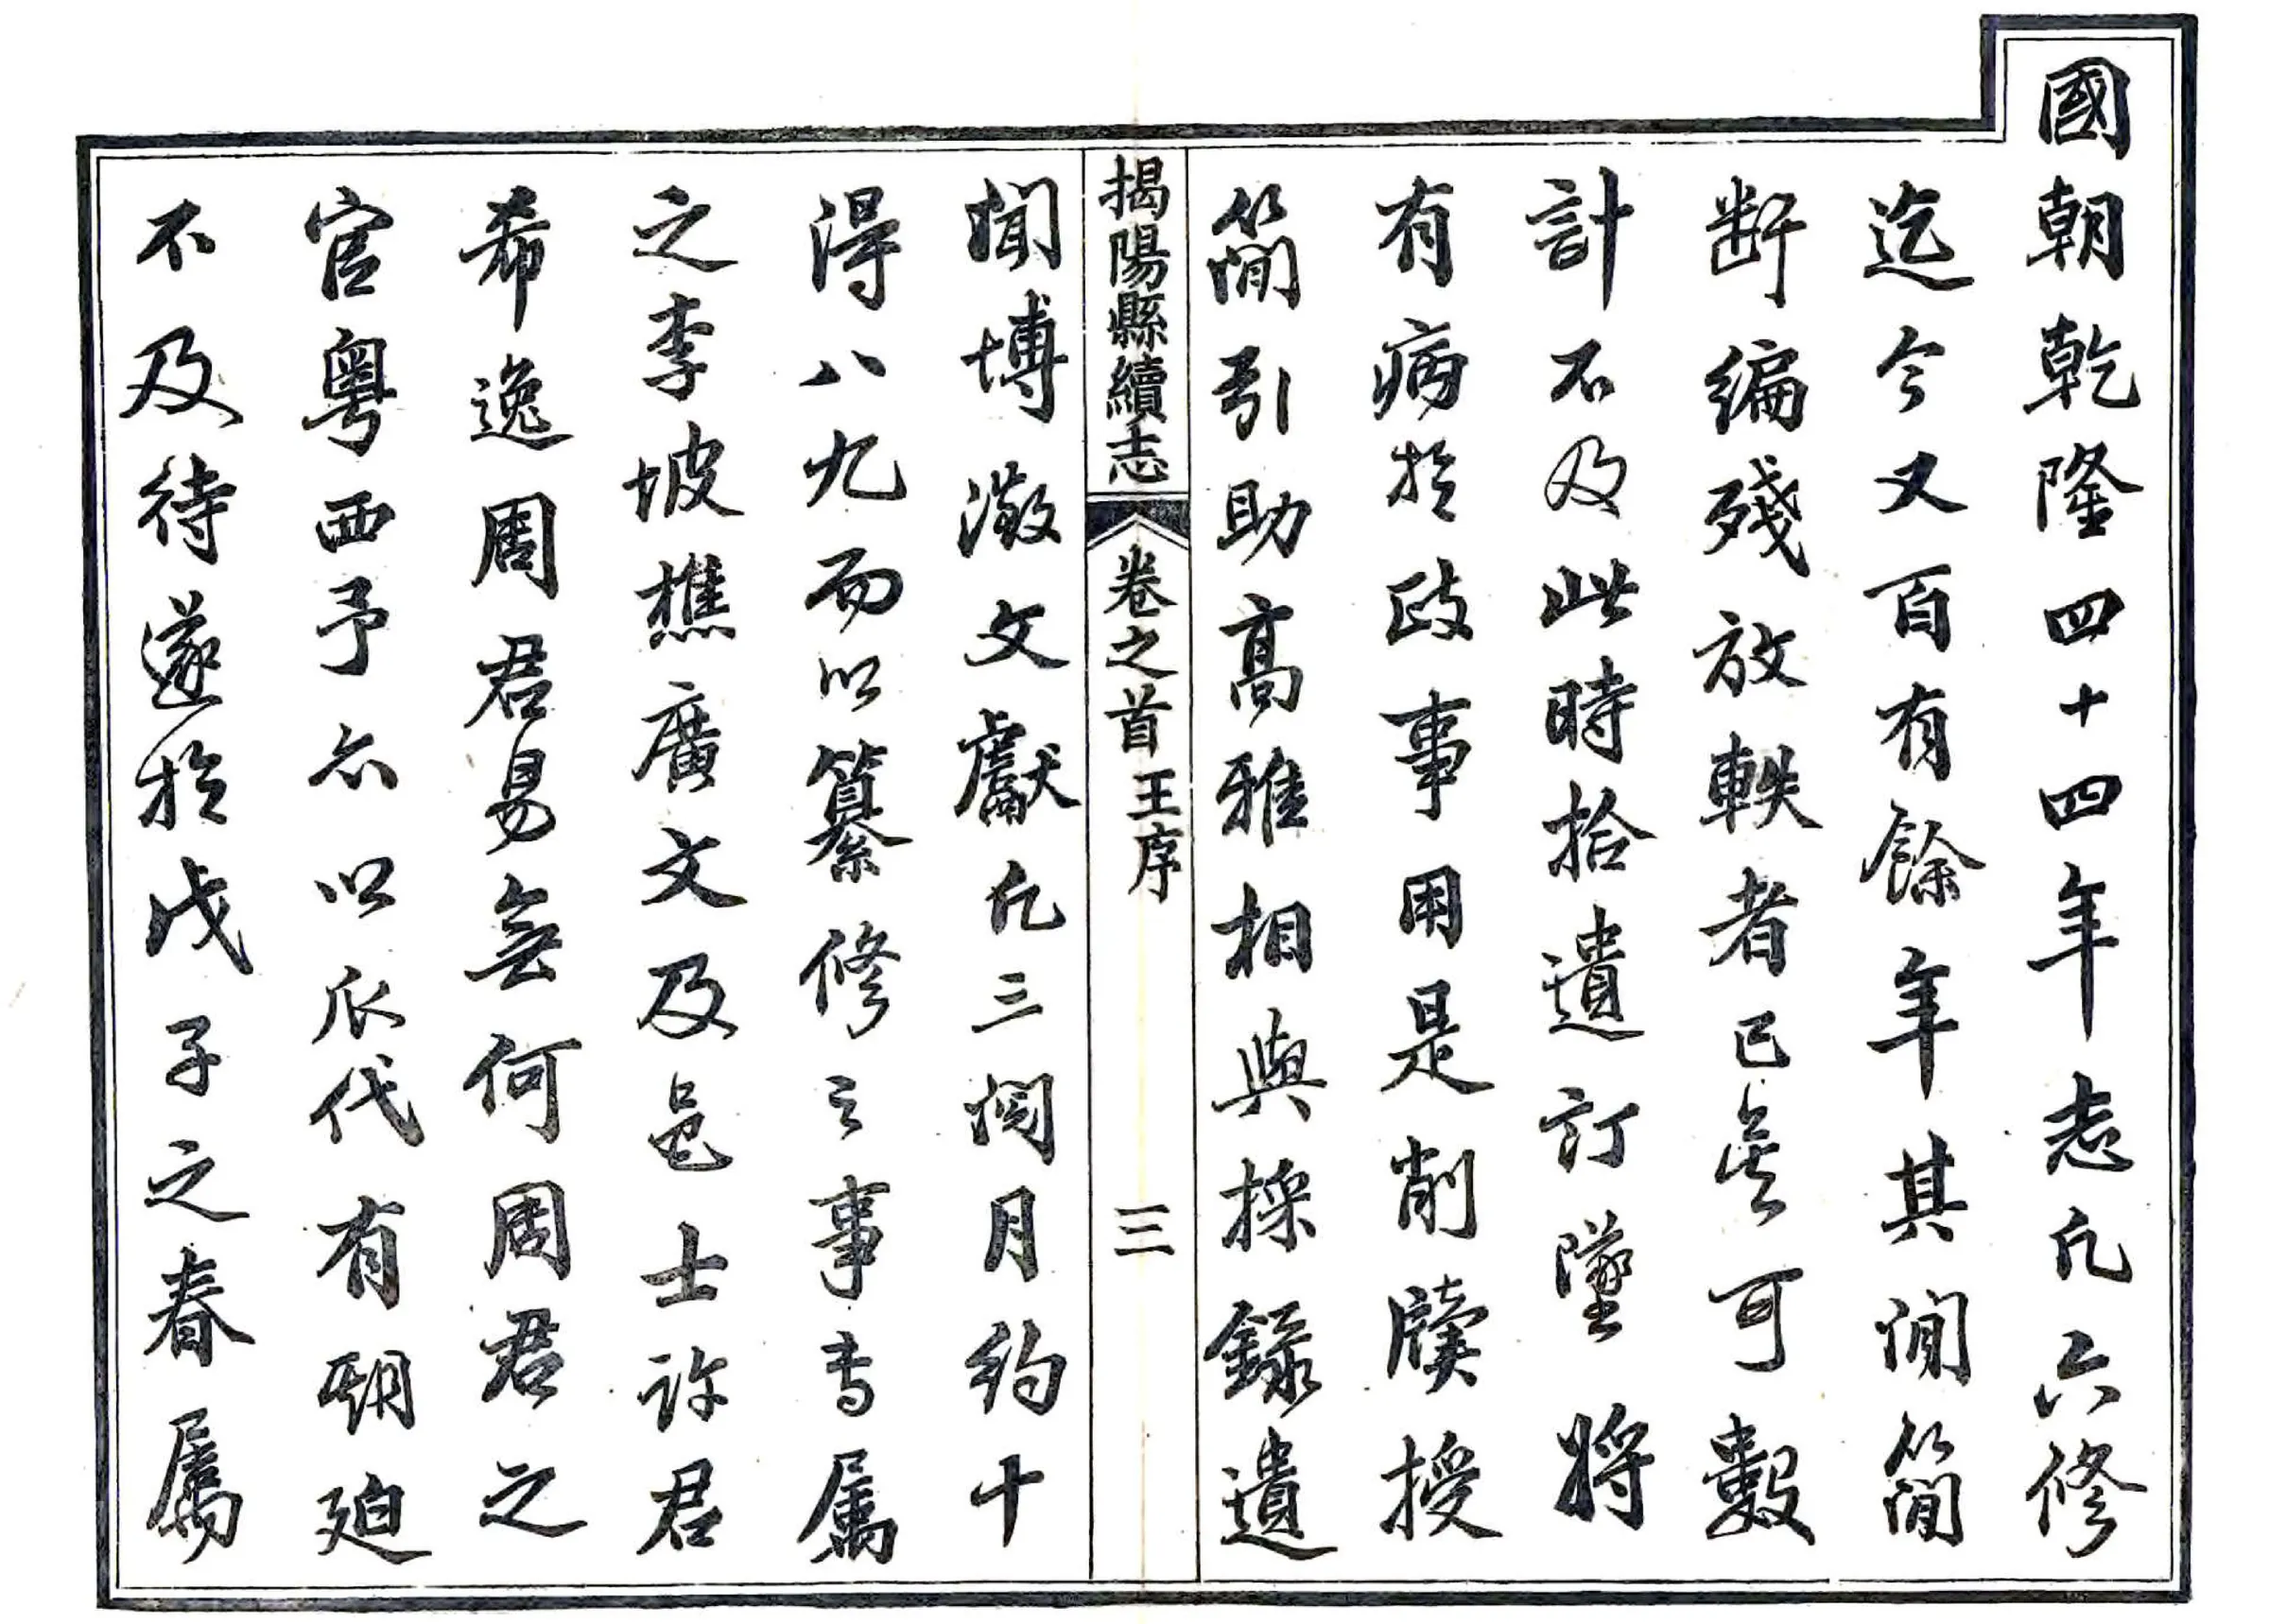 國朝乾隆四十四年志凡六修
迄今又百有餘年其間簡
斷編殘放軼者已無可數
計不及此時拾遺訂墜將
有病於政事用是削牘授
簡引助高雅相與採錄遺
揭陽縣續志 卷之首 王序 三
聞博徵文獻凡三閱月約十
得八九而以纂修之事專屬
之李坡樵廣文及邑士許君
希逸周君易無何周君之
官粵西予亦以瓜代有期迫
不及待遂於戊子之春屬